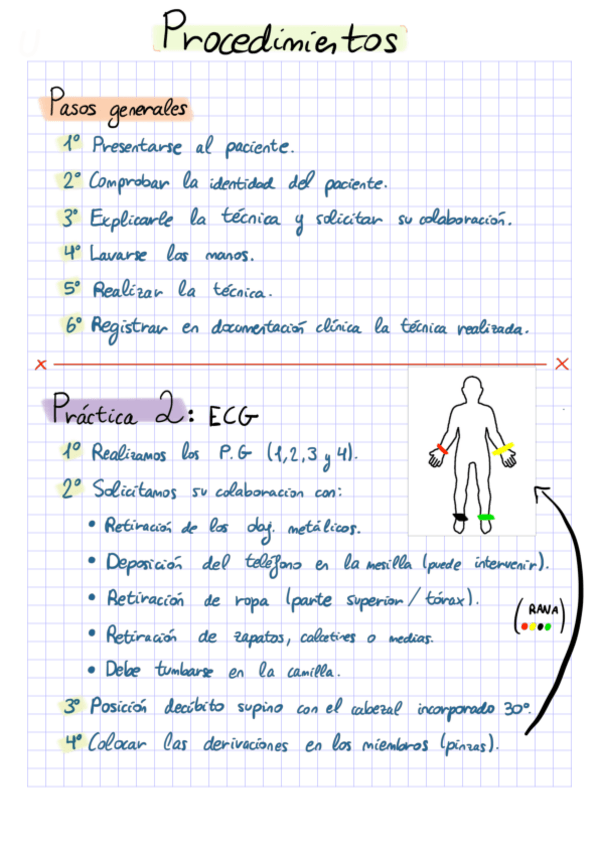 Procedimientos
Pasos generales
1º Presentarse al paciente.
2º Comprobar la identidad del paciente.
3º Explicarle la técnica y solicitar su colaboración.
4º Lavarse las manos.
5º Realizar la técnica.
6º Registrar en documentación clínica la técnica realizada.
x x
Práctica 2: ECG
1º Realizamos los P.G (1,2,3 y 4).
2º Solicitamos su colaboracion con:
• Retiración de los obj. metálicos.
• Deposición del teléfono en la mesilla (puede intervenir).
• Retiración de ropa (parte superior / tórax).
(RANA)
• Retiración de zapatos, calcetines o medias.
• Debe tumbarse en la camilla.
3º Posición decúbito supino con el cabezal incorporado 30º.
4º Colocar las derivaciones en los miembros (pinzas).